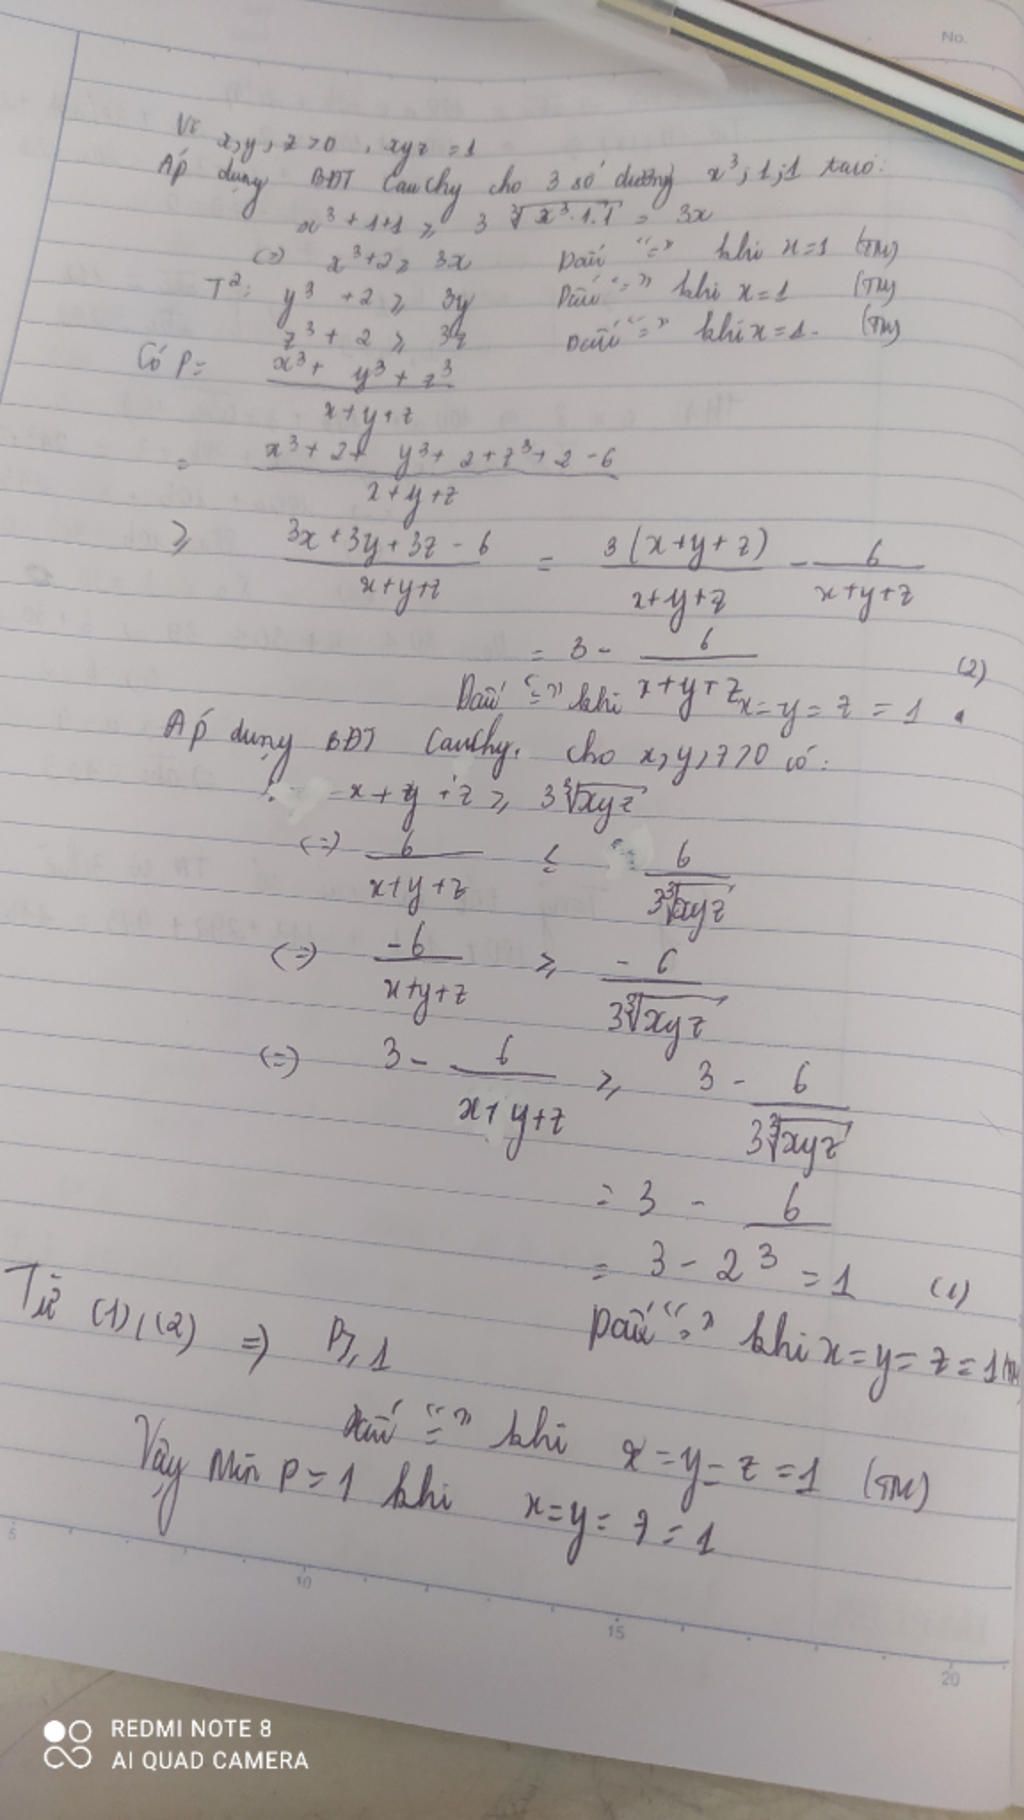 No.
Vì x, y, z > 0, xyz = 1
Áp dụng BĐT Cauchy cho 3 số dương x³; 1; 1 ta có:
x³ + 1 + 1 ≥ 3 ∛(x³.1.1) = 3x
(=) x³ + 2 ≥ 3x Dấu "=" khi x = 1 (TM)
T²: y³ + 2 ≥ 3y Dấu "=" khi x = 1 (TM)
z³ + 2 ≥ 3z Dấu "=" khi x = 1. (TM)
Có P = (x³ + y³ + z³)/(x+y+z)
= (x³ + 2 + y³ + 2 + z³ + 2 - 6)/(x+y+z)
≥ (3x + 3y + 3z - 6)/(x+y+z) = 3(x+y+z)/(x+y+z) - 6/(x+y+z)
= 3 - 6/(x+y+z) (2)
Dấu "=" khi x = y = z = 1.
Áp dụng BĐT Cauchy. cho x, y, z > 0 có:
x + y + z ≥ 3∛(xyz)
(=) 6/(x+y+z) ≤ 6/(3∛(xyz))
(=) -6/(x+y+z) ≥ -6/(3∛(xyz))
(=) 3 - 6/(x+y+z) ≥ 3 - 6/(3∛(xyz))
= 3 - 6/3
= 3 - 2 = 1 (1)
Dấu "=" khi x = y = z = 1 (TM)
Từ (1), (2) => P ≥ 1
Dấu "=" khi x = y = z = 1 (TM)
Vậy Min P = 1 khi x = y = z = 1
5 10 15 20
REDMI NOTE 8
AI QUAD CAMERA